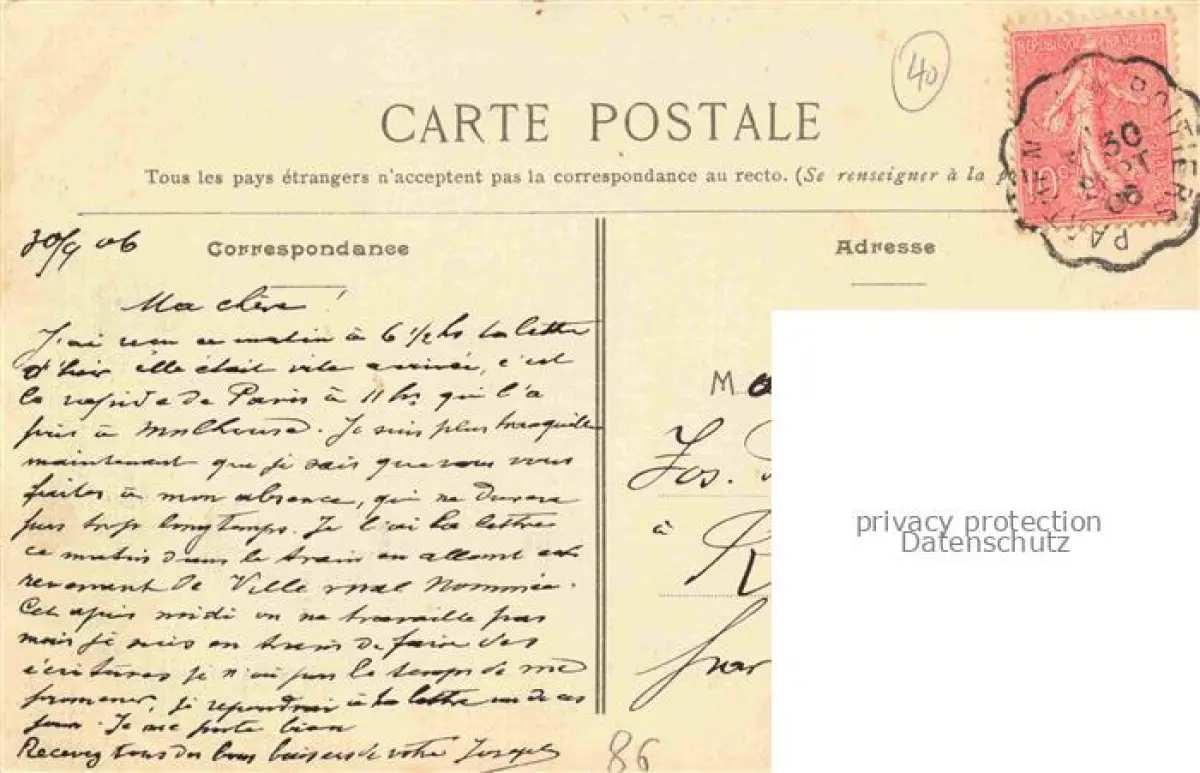 40
RÉPUBLIQUE FRANÇAISE
POITIERS
30
06
CARTE POSTALE
Tous les pays étrangers n'acceptent pas la correspondance au recto. (Se renseigner à la
30/9 06
Correspondance
Adresse
Ma chère !
J'ai reçu ce matin à 6 1/2 hs ta lettre
d'hier elle était vite arrivée, c'est
le rapide de Paris à 11 hs qui l'a
pris à Mulhouse. Je suis plus tranquille
maintenant que je sais que vous vous
faites à mon absence, qui ne durera
pas trop longtemps. Je l'ai lu la lettre
ce matin dans le train en allant et
revenant de Ville mal Nommée.
Cet après midi on ne travaille pas
mais je suis en train de faire des
écritures je n'ai pas le temps de me
promener, je répondrai à ta lettre un de ces
jours. Je me porte bien
Recevez tous des bons baisers de votre Joseph
M
Jos.
à
par
privacy protection
Datenschutz
86